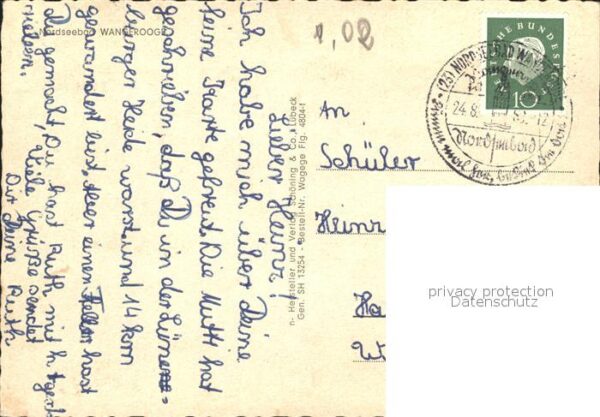 Nordseebad WANGEROOGE
1,02
Lieber Heinz!
Ich habe mich über Deine
feine Karte gefreut. Die Mutti hat
geschrieben, daß Du in der Lüne=
burger Heide warst und 14 km
gewandert bist. Aber einen Fehler hast
Du gemacht, Du hast Ruth mit h geschr
Viele Grüße sendet
Dir Deine Ruth
n- Hersteller und Verlag Schöning & Co., Lübeck
Gen. SH 13254 - Bestell-Nr. Wagege Fig. 4804-1
HE BUNDESPOST
10
(23) NORDSEEBAD WANGEROOGE
24.8.
-12
Nordseebad
An
Schüler
Heinz
Ha
W
privacy protection
Datenschutz